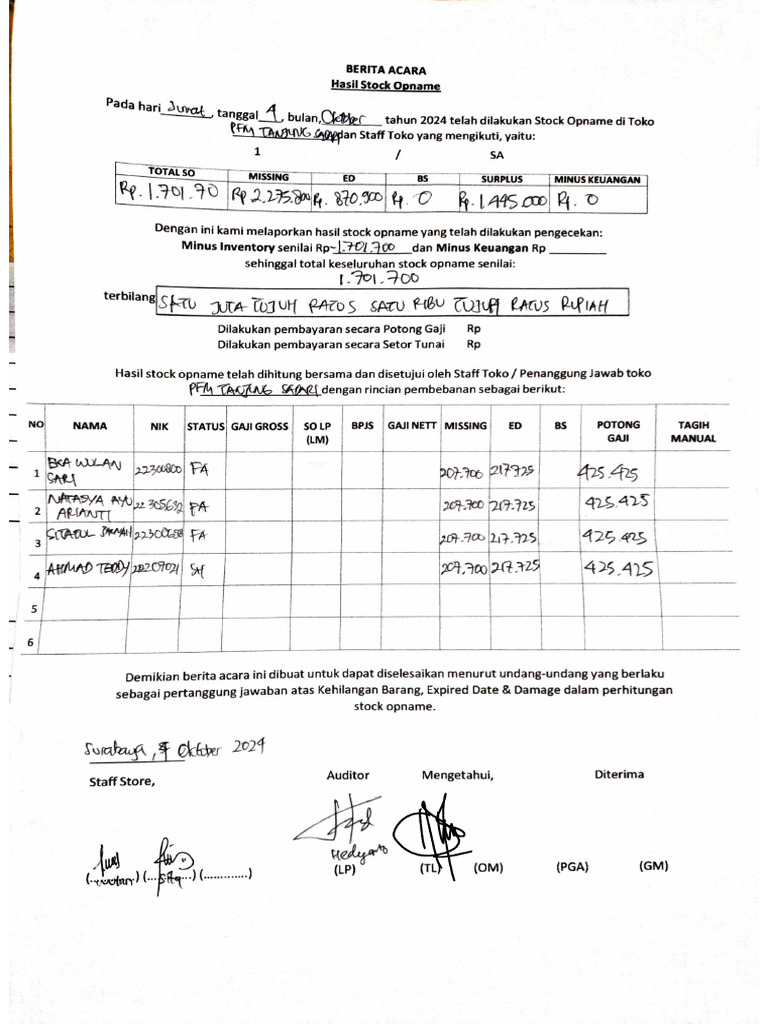 BERITA ACARA
Hasil Stock Opname
Pada hari Jumat, tanggal 4, bulan, Oktober tahun 2024 telah dilakukan Stock Opname di Toko
PFM TANJUNG SARI dan Staff Toko yang mengikuti, yaitu:
1 / SA
TOTAL SO MISSING ED BS SURPLUS MINUS KEUANGAN
Rp. 1.701.70 Rp 2.275.800 Rp. 870.900 Rp. 0 Rp. 1.445.000 Rp. 0
Dengan ini kami melaporkan hasil stock opname yang telah dilakukan pengecekan:
Minus Inventory senilai Rp -1.701.700 dan Minus Keuangan Rp
sehinggal total keseluruhan stock opname senilai:
1.701.700
terbilang SATU JUTA TUJUH RATUS SATU RIBU TUJUH RATUS RUPIAH
Dilakukan pembayaran secara Potong Gaji Rp
Dilakukan pembayaran secara Setor Tunai Rp
Hasil stock opname telah dihitung bersama dan disetujui oleh Staff Toko / Penanggung Jawab toko
PFM TANJUNG SARI dengan rincian pembebanan sebagai berikut:
NO NAMA NIK STATUS GAJI GROSS SO LP (LM) BPJS GAJI NETT MISSING ED BS POTONG GAJI TAGIH MANUAL
1 EKA WULAN SARI 22300800 FA 207.700 217.725 425.425
2 NATASYA AYU ARIANTI 22305632 PA 207.700 217.725 425.425
3 SITATUL 22300688 FA 207.700 217.725 425.425
4 AHMAD TEDDY 202207021 SH 207.700 217.725 425.425
5
6
Demikian berita acara ini dibuat untuk dapat diselesaikan menurut undang-undang yang berlaku
sebagai pertanggung jawaban atas Kehilangan Barang, Expired Date & Damage dalam perhitungan
stock opname.
Surabaya, 4 Oktober 2024
Staff Store, Auditor Mengetahui, Diterima
Hedyanto
(..wulan) (...Sita...) (.............) (LP) (TL) (OM) (PGA) (GM)